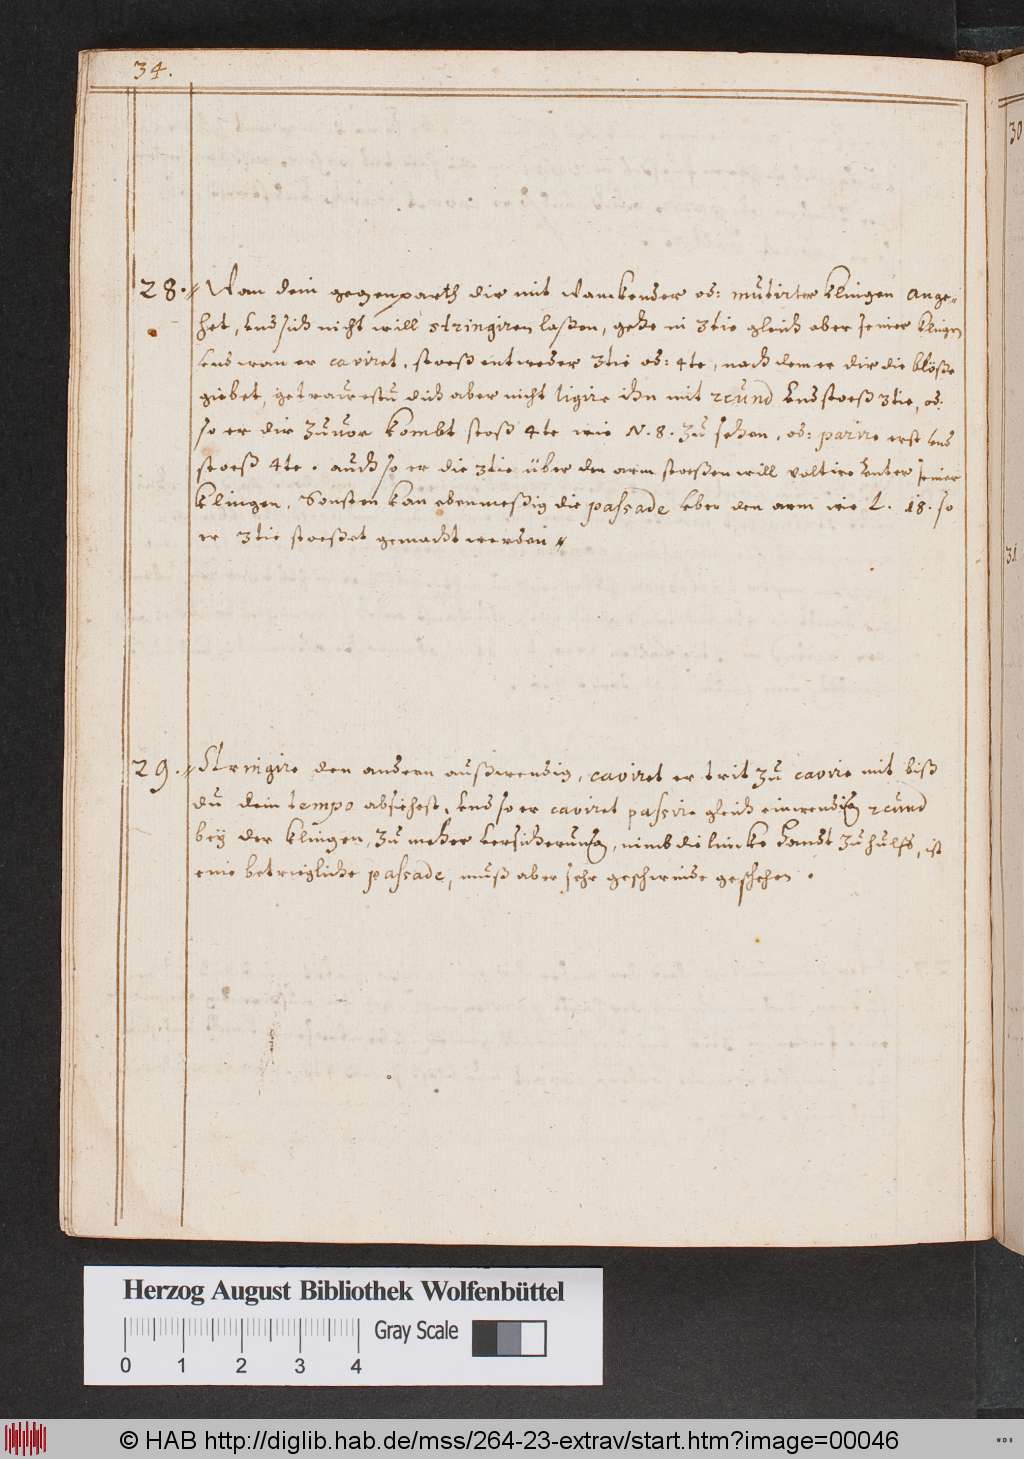 34.
28. Wan dein gegenparth dir mit wanckender od: mutirter klingen ange-
het, und sich nicht will stringiren laßen, gehe in 3tie gleich ober seiner klingen
und wan er caviret, stoeß entweder 3tie od: 4te, nach dem er dir die blöße
giebet, getrauestu dich aber nicht ligire ihn mit 2cund und stoeß 3tie, od:
so er dir zuuor kombt stoß 4te wie N. 8. zu sehen, od: parire erst und
stoeß 4te. auch so er die 3tie über den arm stoeßen will voltire unter seiner
klingen. Sonsten kan ebenmeßig die passade uber den arm wie L. 18. so
er 3tie stoeßet gemacht werden
29. Stringire den andern außwendig, caviret er trit zu cavire mit biß
du dein tempo absiehest, und so er caviret passire gleich einwendig 2cund
bey der klingen, zu meher versicherung, nimb die lincke handt zu hulff, ist
eine betriegliche passade, muß aber sehr geschwinde geschehen.
30
31
Herzog August Bibliothek Wolfenbüttel
Gray Scale
0 1 2 3 4
© HAB http://diglib.hab.de/mss/264-23-extrav/start.htm?image=00046